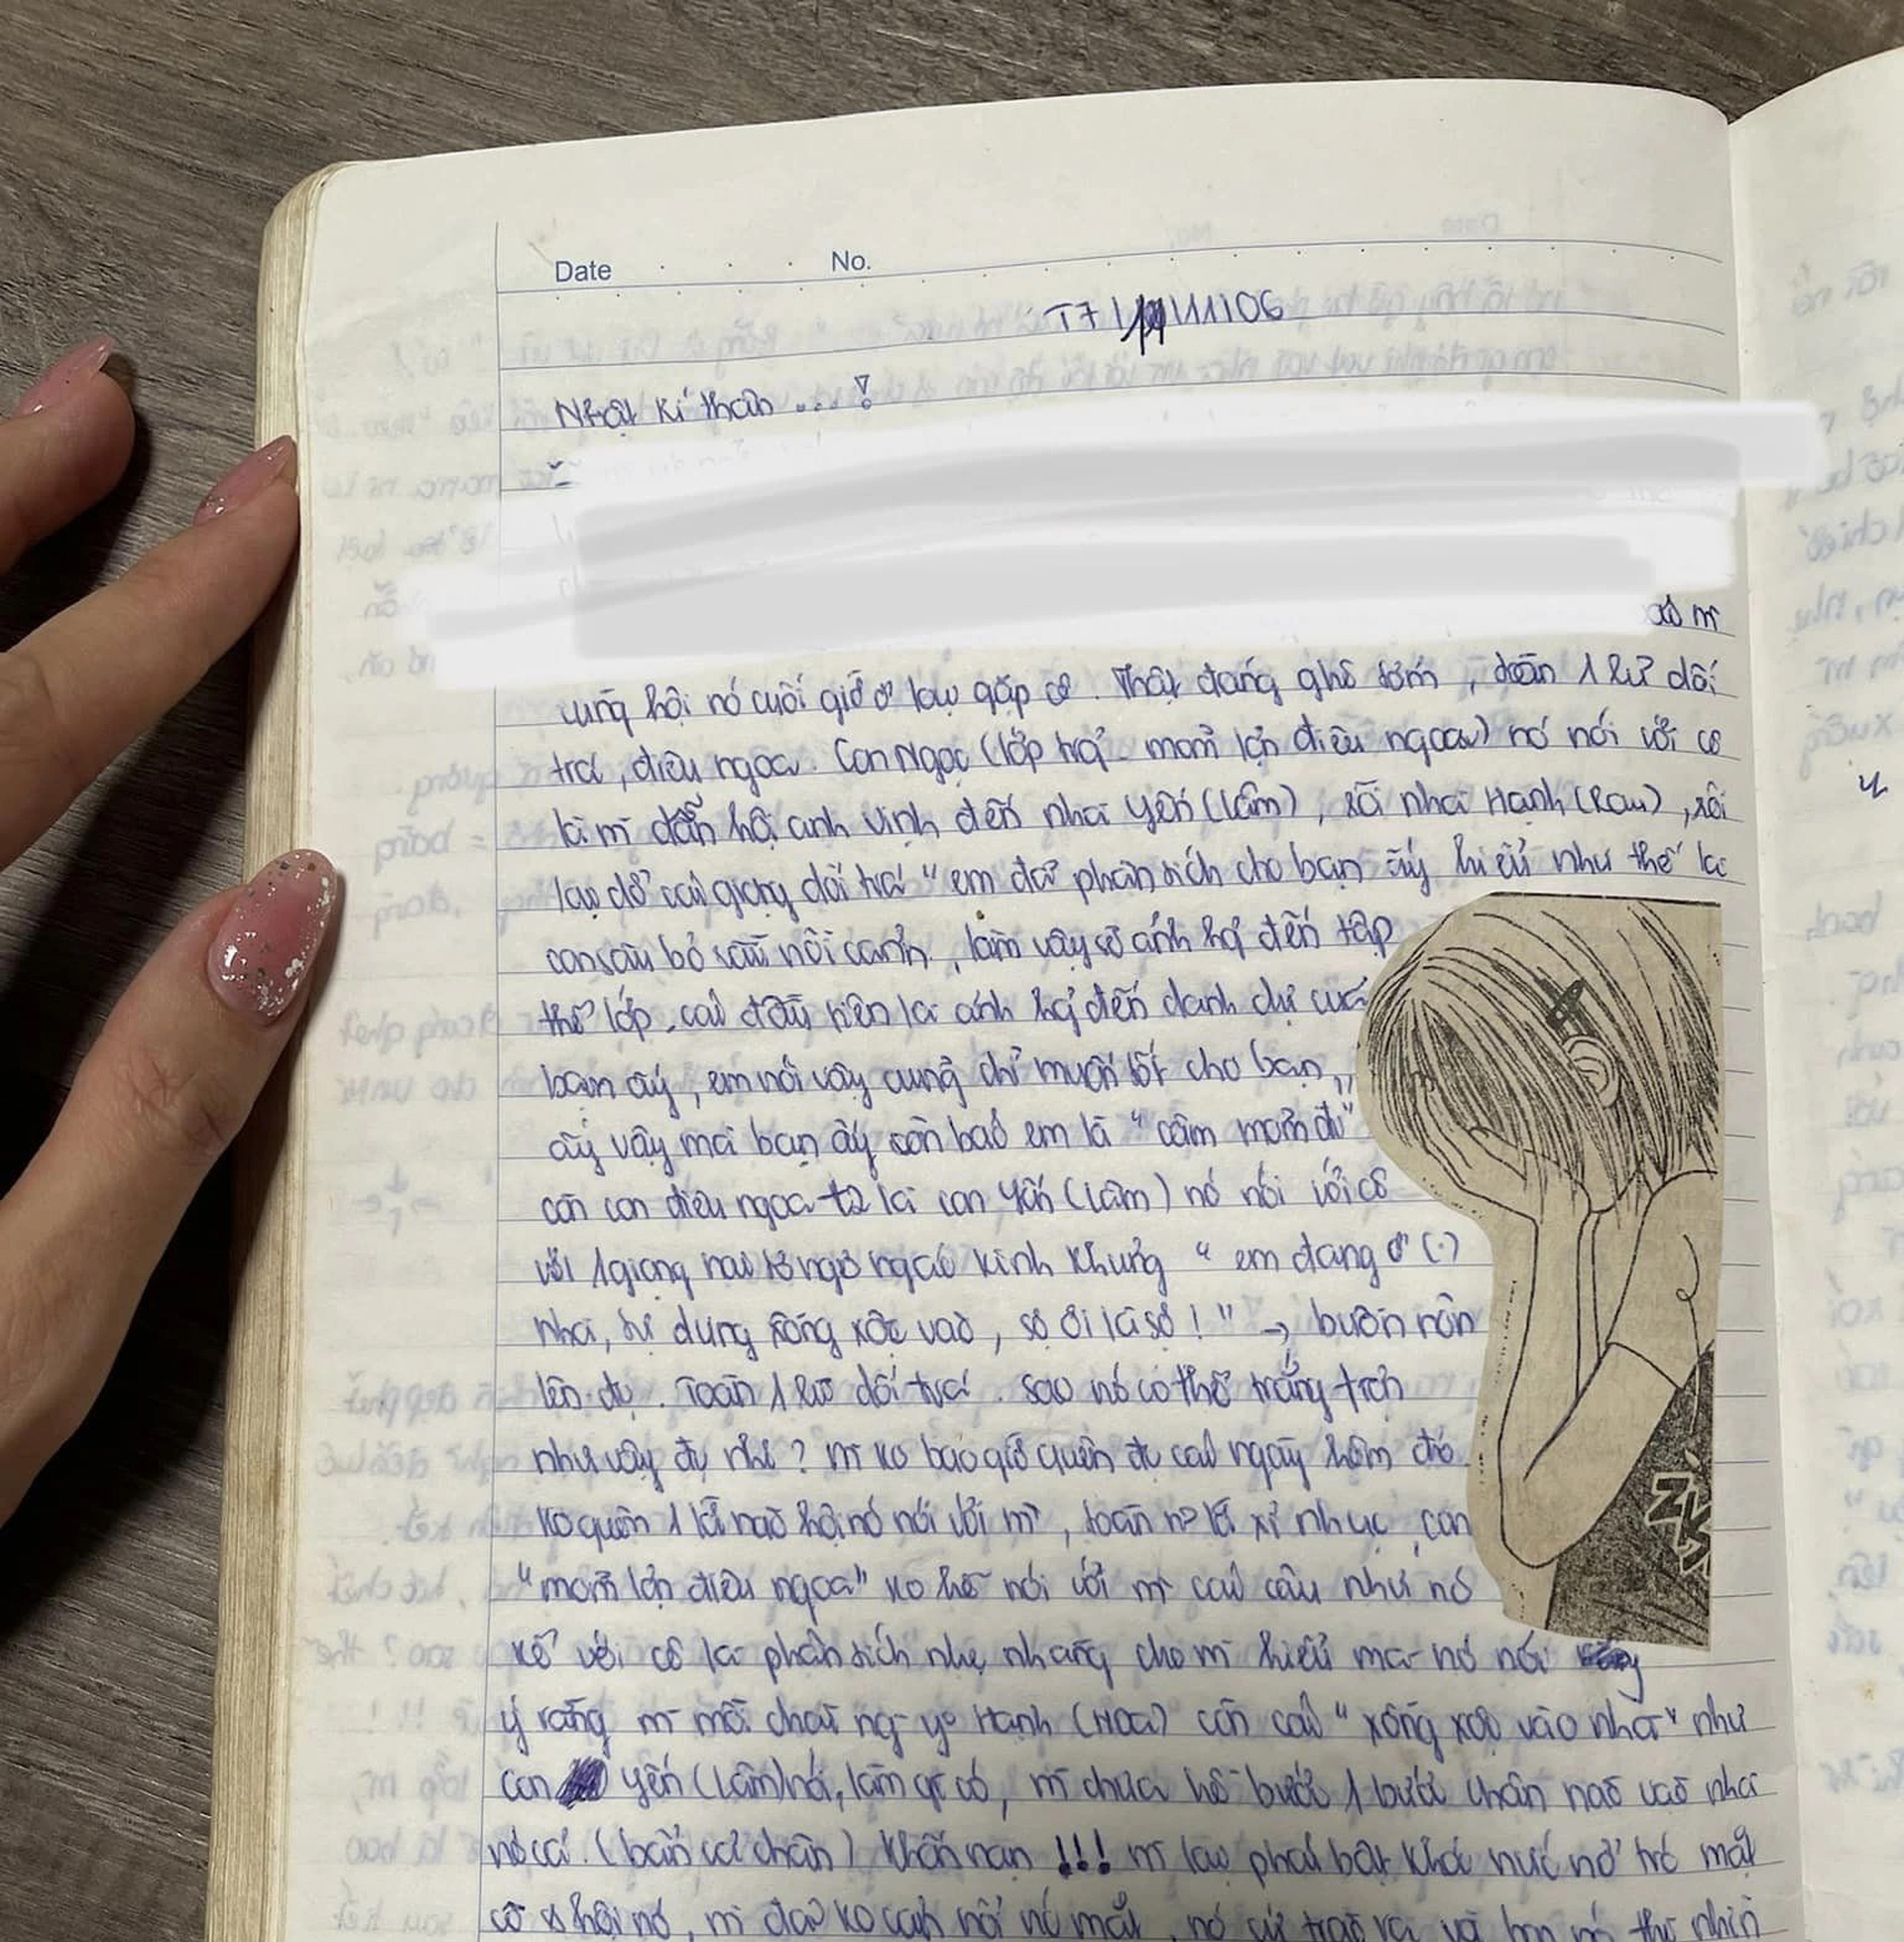 Date No.
T7 11/11/06
Nhật kí thân ...!
cũng hội nó cuối giờ ở lại gặp cô. Thật đáng ghê tởm, toàn 1 lũ dối
trá, điêu ngoa. Con Ngọc (lớp trg - mồm lợn điêu ngoa) nó nói với cô
là m dẫn hội anh Vinh đến nhà Yến (Lâm), rồi nhà Hạnh (), rồi
lại dở cái giọng dối trá "em đã phân tích cho bạn ấy hiểu như thế là
con sâu bỏ rầu nồi canh, làm vậy sẽ ảnh hg đến tập
thể lớp, cái đầu tiên là ảnh hg đến danh dự của
bạn ấy, em nói vậy cũng chỉ muốn tốt cho bạn,,
ấy vậy mà bạn ấy còn bảo em là "câm mồm đi"
còn con điêu ngoa t2 là con Yến (Lâm) nó nói với cô
với 1 giọng nai tơ ngơ ngác kinh khủng "em đang ở (.)
nhà, tự dưng xông xộc vào, sợ ơi là sợ!" → buồn nôn
lên đc. Toàn 1 lũ dối trá. Sao nó có thể trắng trợn
như vậy đc nhỉ? m ko bao giờ quên đc cái ngày hôm đó.
Ko quên 1 lời nào hội nó nói với m, toàn n~ lời xỉ nhục, con
"mồm lợn điêu ngoa" ko hề nói với m cái câu như nó
kể với cô là phân tích nhẹ nhàng cho m hiểu mà nó nói
ý rằng m mồi chài ng- y° Hạnh (Hoa) còn cái "xông xộc vào nhà" như
con Yến (Lâm) nói, làm gì có, m chưa hề bước 1 bước chân nào vào nhà
nó cả. (bẩn cả chân) Khốn nạn !!! m lại phải bật khóc nức nở trc mặt
cô x hội nó, m đã ko nổi nc mắt, nó cứ trào ra và m thì nhìn